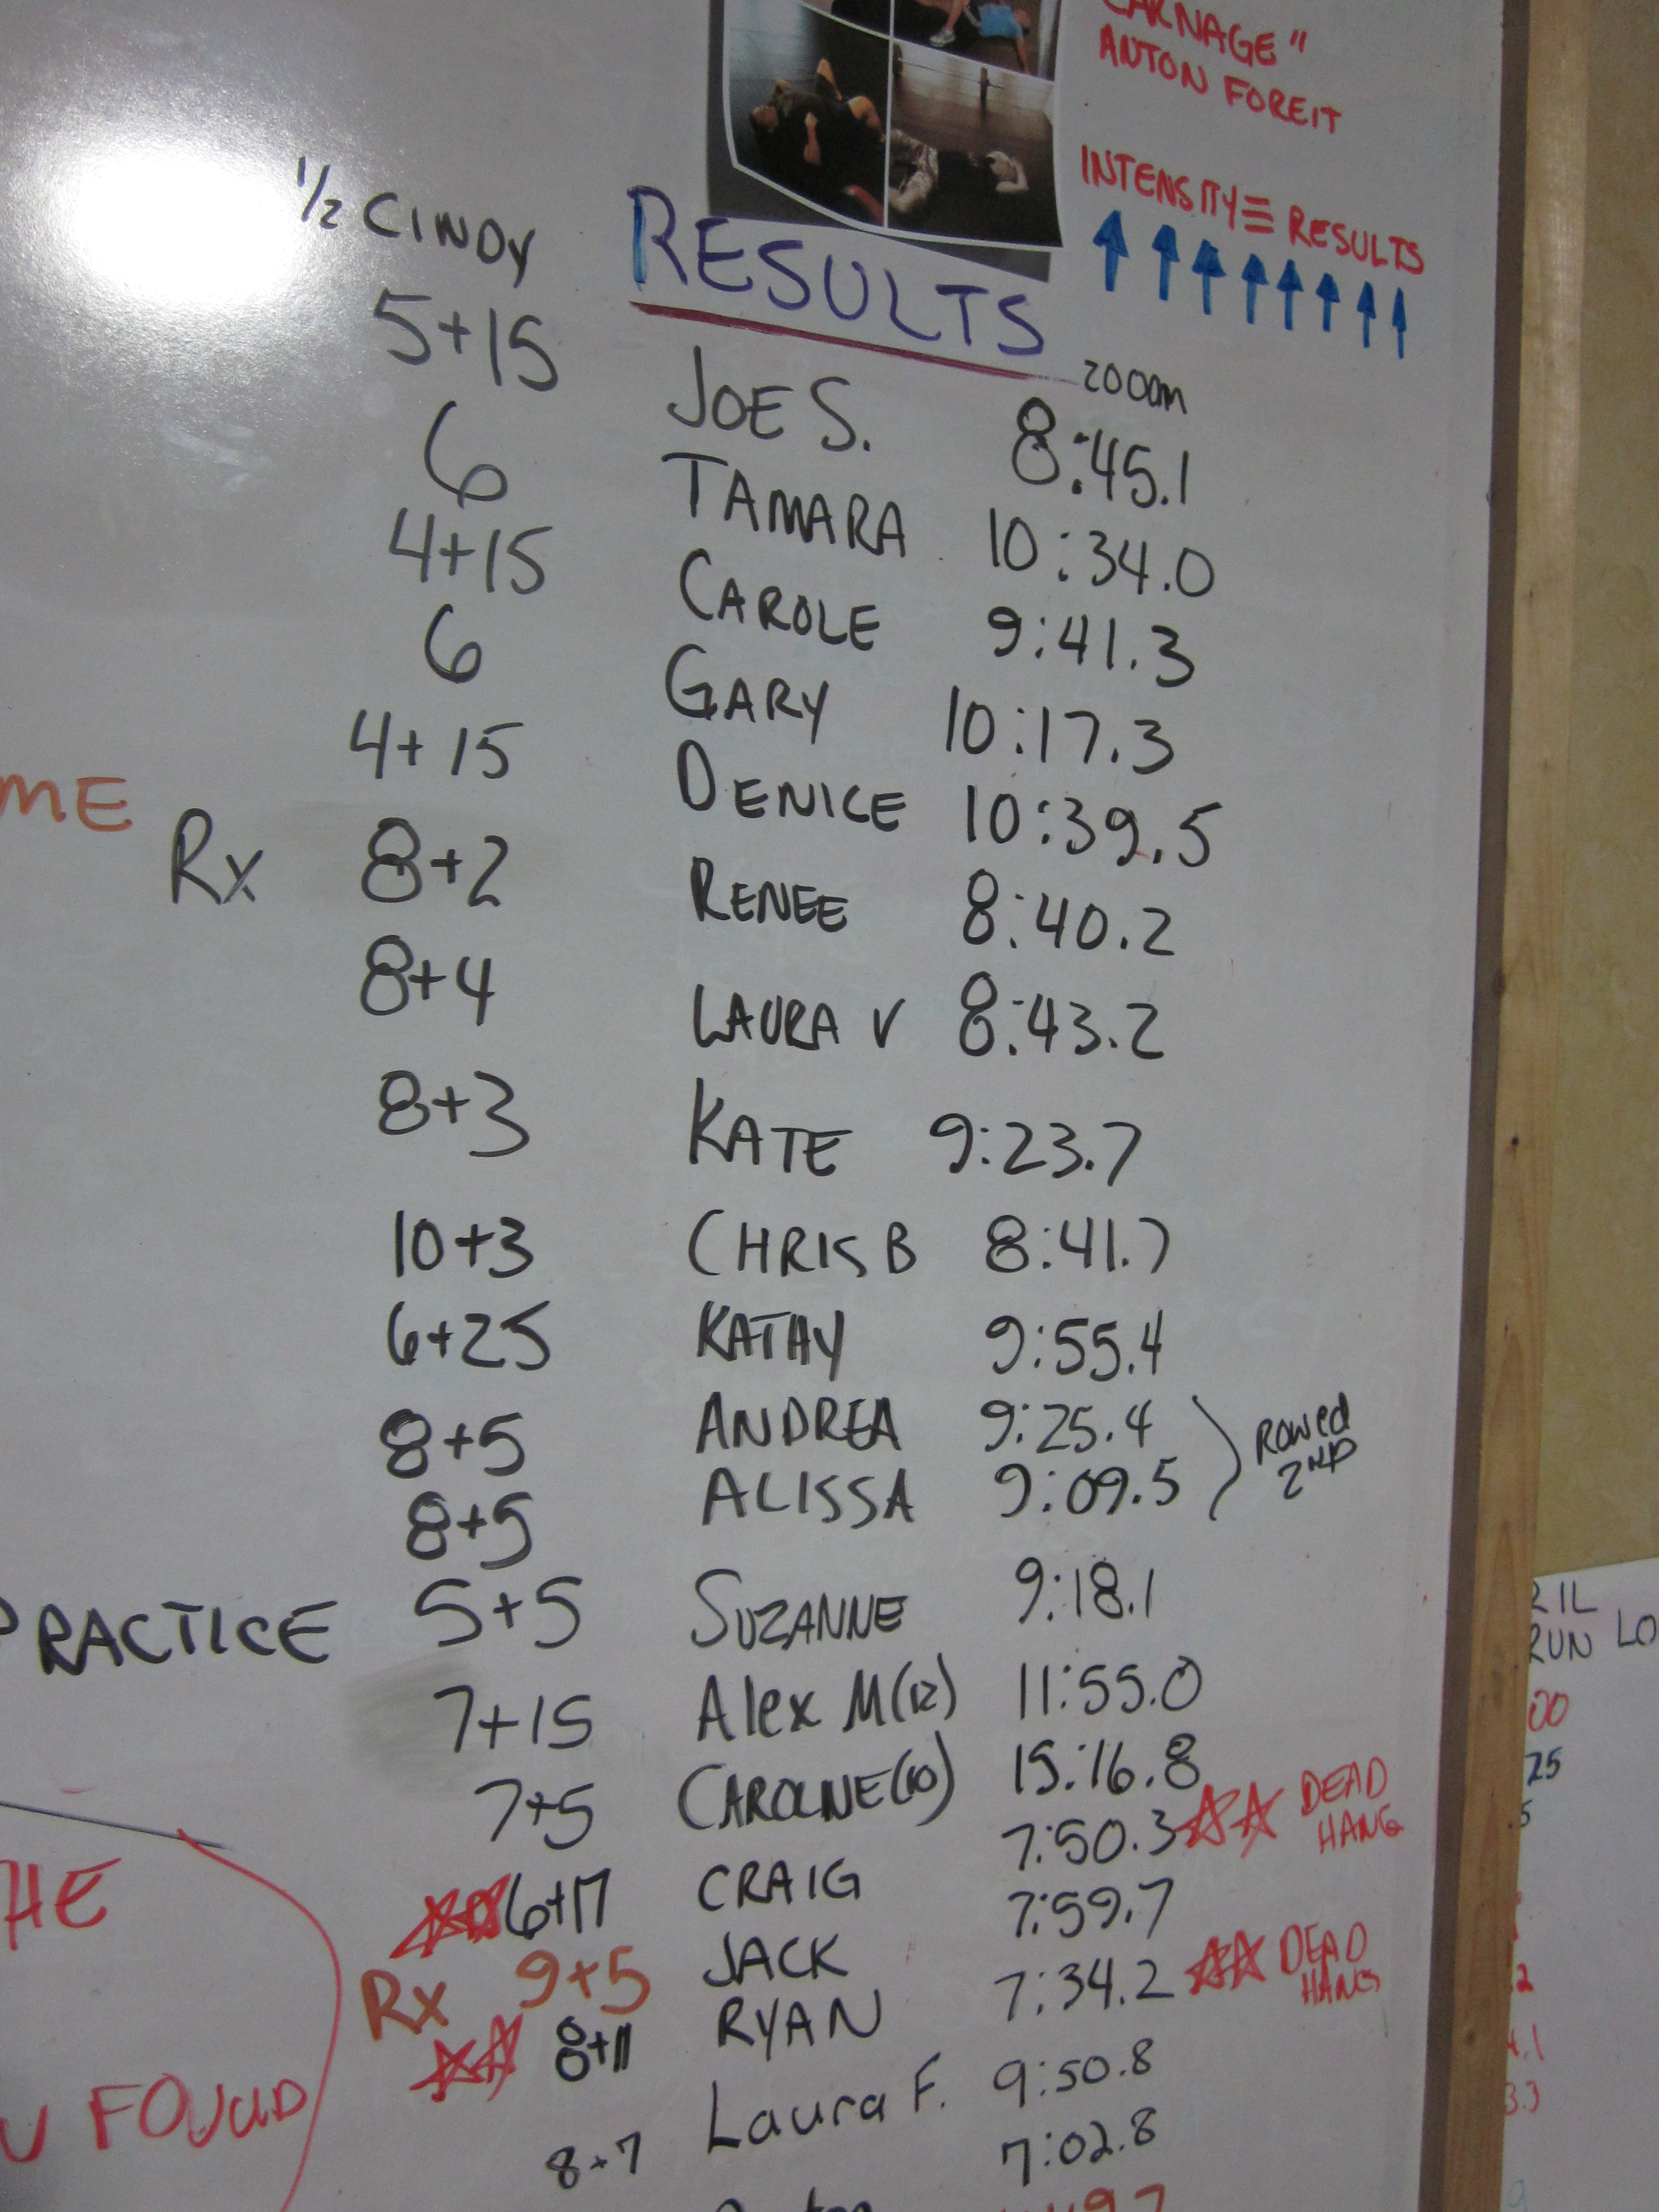 CARNAGE"
ANTON FOREIT
INTENSITY ≡ RESULTS
1/2 CINDY RESULTS 2000m
5+15 JOE S. 8:45.1
6 TAMARA 10:34.0
4+15 CAROLE 9:41.3
6 GARY 10:17.3
4+15 DENICE 10:39.5
ME
Rx 8+2 RENEE 8:40.2
8+4 LAURA V 8:43.2
8+3 KATE 9:23.7
10+3 CHRIS B 8:41.7
6+25 KATHY 9:55.4
8+5 ANDREA 9:25.4
8+5 ALISSA 9:09.5
ROWED
2ND
PRACTICE 5+5 SUZANNE 9:18.1
7+15 Alex M(12) 11:55.0
7+5 CAROLINE(10) 15:16.8
6+17 CRAIG 7:50.3 DEAD
HANG
Rx 9+5 JACK 7:59.7
8+11 RYAN 7:34.2 DEAD
HANG
Laura F. 9:50.8
8+7 7:02.8
HE
U FOUND
RIL
RUN LO
00
25
5
2
.1
3.3